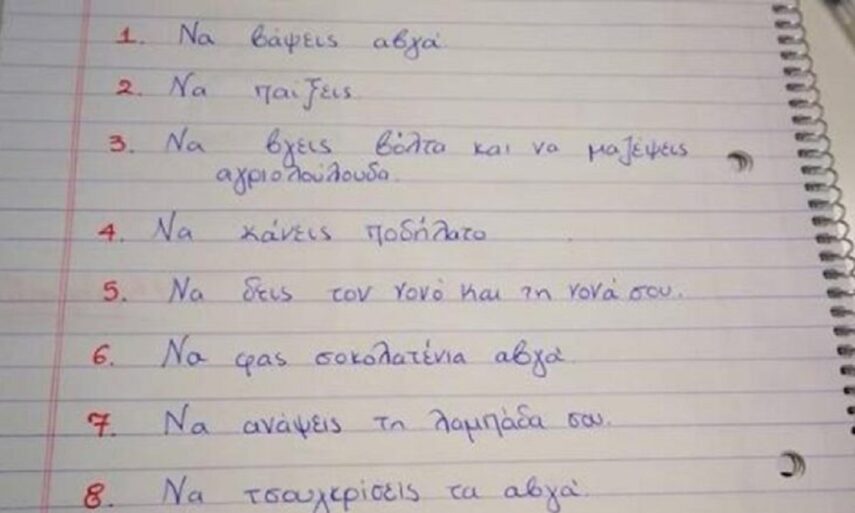 1. Να βάψεις αβγά
2. Να παίξεις.
3. Να βγεις βόλτα και να μαζέψεις
αγριολούλουδα.
4. Να κάνεις ποδήλατο
5. Να δεις τον νονό και τη νονά σου.
6. Να φας σοκολατένια αβγά.
7. Να ανάψεις τη λαμπάδα σου.
8. Να τσουγκρίσεις τα αβγά.